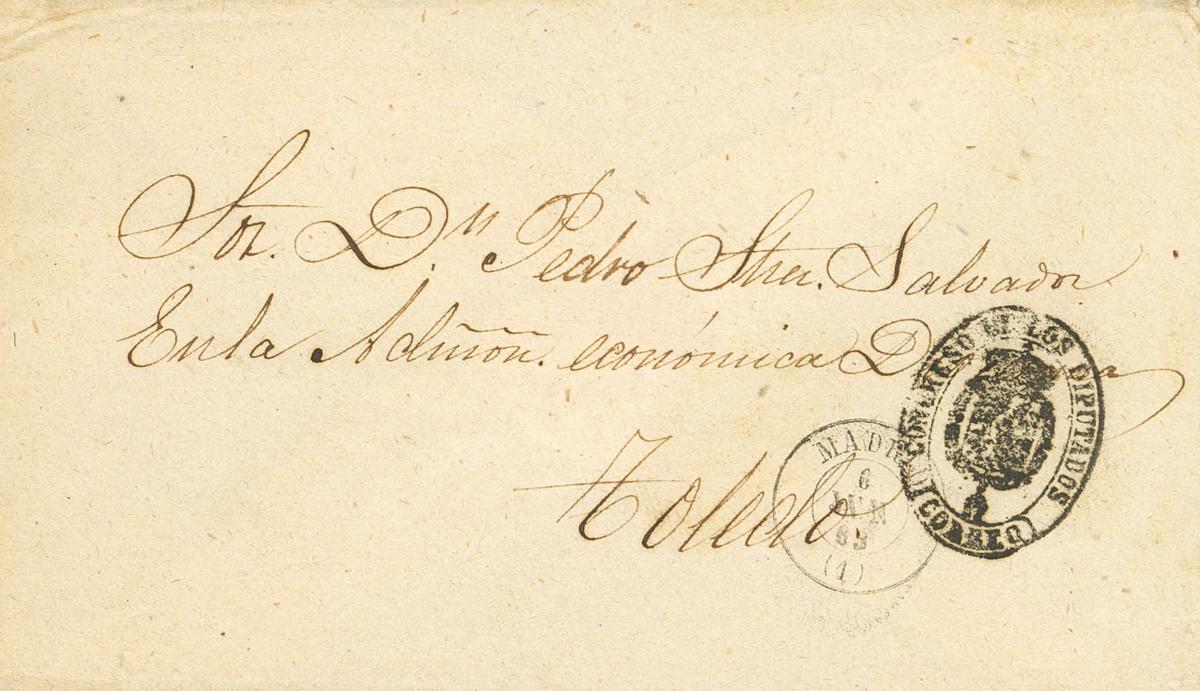 Sor. Dn. Pedro Sher. Salvador.
En la Admon. económica
Toledo.
MADR
6
JUN
63
(1)
CONGRESO DE LOS DIPUTADOS
(CORREO)